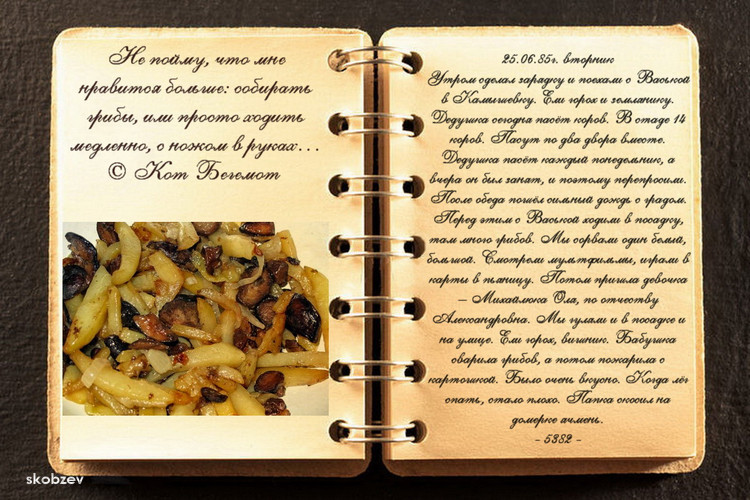 Не пойму, что мне
нравится больше: собирать
грибы, или просто ходить
медленно, с ножом в руках...
© Кот Бегемот
25.06.85г. вторник
Утром сделал зарядку и поехали с Васькой
в Камышевку. Ем горох и землянику.
Дедушка сегодня пасёт коров. В стаде 14
коров. Пасут по два двора вместе.
Дедушка пасёт каждый понедельник, а
вчера он был занят, и поэтому перепросили.
После обеда пошёл сильный дождь с градом.
Перед этим с Васькой ходили в посадку,
там много грибов. Мы сорвали один белый,
большой. Смотрели мультфильмы, играли в
карты в пьяницу. Потом пришла девочка
– Михайлюка Ола, по отчеству
Александровна. Мы гуляли и в посадке и
на улице. Ем горох, вишню. Бабушка
сварила грибов, а потом пожарила с
картошкой. Было очень вкусно. Когда лёг
спать, стало плохо. Папка скосил на
домерке ячмень.
- 5382 -
skobzev